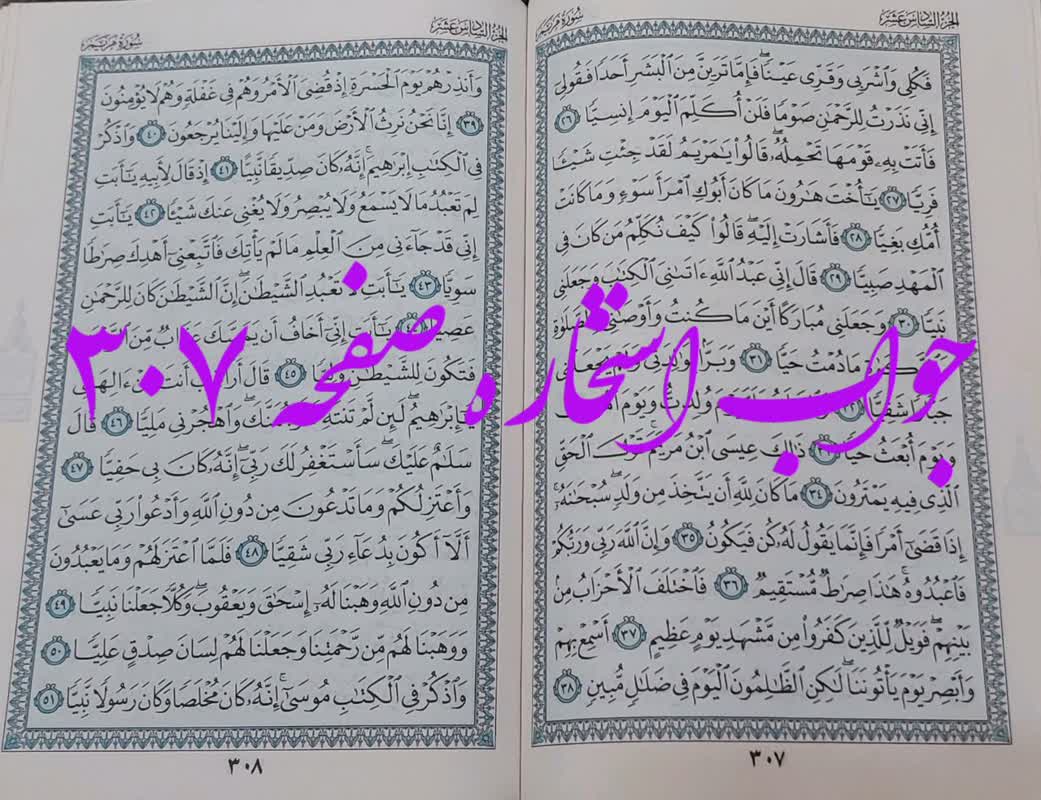 الجزء السادس عشر
سورة مريم
فَكُلِى وَٱشْرَبِى وَقَرِّى عَيْنًا ۖ فَإِمَّا تَرَيِنَّ مِنَ ٱلْبَشَرِ أَحَدًا فَقُولِىٓ
إِنِّى نَذَرْتُ لِلرَّحْمَٰنِ صَوْمًا فَلَنْ أُكَلِّمَ ٱلْيَوْمَ إِنسِيًّا ٢٦
فَأَتَتْ بِهِۦ قَوْمَهَا تَحْمِلُهُۥ ۖ قَالُوا۟ يَٰمَرْيَمُ لَقَدْ جِئْتِ شَيْـًٔا
فَرِيًّا ٢٧ يَٰٓأُخْتَ هَٰرُونَ مَا كَانَ أَبُوكِ ٱمْرَأَ سَوْءٍ وَمَا كَانَتْ
أُمُّكِ بَغِيًّا ٢٨ فَأَشَارَتْ إِلَيْهِ ۖ قَالُوا۟ كَيْفَ نُكَلِّمُ مَن كَانَ فِى
ٱلْمَهْدِ صَبِيًّا ٢٩ قَالَ إِنِّى عَبْدُ ٱللَّهِ ءَاتَىٰنِىَ ٱلْكِتَٰبَ وَجَعَلَنِى
نَبِيًّا ٣٠ وَجَعَلَنِى مُبَارَكًا أَيْنَ مَا كُنتُ وَأَوْصَٰنِى بِٱلصَّلَوٰةِ
وَٱلزَّكَوٰةِ مَا دُمْتُ حَيًّا ٣١ وَبَرًّۢا بِوَٰلِدَتِى وَلَمْ يَجْعَلْنِى
جَبَّارًا شَقِيًّا ٣٢ وَٱلسَّلَٰمُ عَلَىَّ يَوْمَ وُلِدتُّ وَيَوْمَ أَمُوتُ
وَيَوْمَ أُبْعَثُ حَيًّا ٣٣ ذَٰلِكَ عِيسَى ٱبْنُ مَرْيَمَ ۚ قَوْلَ ٱلْحَقِّ
ٱلَّذِى فِيهِ يَمْتَرُونَ ٣٤ مَا كَانَ لِلَّهِ أَن يَتَّخِذَ مِن وَلَدٍ ۖ سُبْحَٰنَهُۥٓ ۚ
إِذَا قَضَىٰٓ أَمْرًا فَإِنَّمَا يَقُولُ لَهُۥ كُن فَيَكُونُ ٣٥ وَإِنَّ ٱللَّهَ رَبِّى وَرَبُّكُمْ
فَٱعْبُدُوهُ ۚ هَٰذَا صِرَٰطٌ مُّسْتَقِيمٌ ٣٦ فَٱخْتَلَفَ ٱلْأَحْزَابُ مِنۢ
بَيْنِهِمْ ۖ فَوَيْلٌ لِّلَّذِينَ كَفَرُوا۟ مِن مَّشْهَدِ يَوْمٍ عَظِيمٍ ٣٧ أَسْمِعْ بِهِمْ
وَأَبْصِرْ يَوْمَ يَأْتُونَنَا ۖ لَٰكِنِ ٱلظَّٰلِمُونَ ٱلْيَوْمَ فِى ضَلَٰلٍ مُّبِينٍ ٣٨
٣٠٧
الجزء السادس عشر
سورة مريم
وَأَنذِرْهُمْ يَوْمَ ٱلْحَسْرَةِ إِذْ قُضِىَ ٱلْأَمْرُ وَهُمْ فِى غَفْلَةٍ وَهُمْ لَا يُؤْمِنُونَ
٣٩ إِنَّا نَحْنُ نَرِثُ ٱلْأَرْضَ وَمَنْ عَلَيْهَا وَإِلَيْنَا يُرْجَعُونَ ٤٠ وَٱذْكُرْ
فِى ٱلْكِتَٰبِ إِبْرَٰهِيمَ ۚ إِنَّهُۥ كَانَ صِدِّيقًا نَّبِيًّا ٤١ إِذْ قَالَ لِأَبِيهِ يَٰٓأَبَتِ
لِمَ تَعْبُدُ مَا لَا يَسْمَعُ وَلَا يُبْصِرُ وَلَا يُغْنِى عَنكَ شَيْـًٔا ٤٢ يَٰٓأَبَتِ
إِنِّى قَدْ جَآءَنِى مِنَ ٱلْعِلْمِ مَا لَمْ يَأْتِكَ فَٱتَّبِعْنِىٓ أَهْدِكَ صِرَٰطًا
سَوِيًّا ٤٣ يَٰٓأَبَتِ لَا تَعْبُدِ ٱلشَّيْطَٰنَ ۖ إِنَّ ٱلشَّيْطَٰنَ كَانَ لِلرَّحْمَٰنِ
عَصِيًّا ٤٤ يَٰٓأَبَتِ إِنِّىٓ أَخَافُ أَن يَمَسَّكَ عَذَابٌ مِّنَ ٱلرَّحْمَٰنِ
فَتَكُونَ لِلشَّيْطَٰنِ وَلِيًّا ٤٥ قَالَ أَرَاغِبٌ أَنتَ عَنْ ءَالِهَتِى
يَٰٓإِبْرَٰهِيمُ ۖ لَئِن لَّمْ تَنتَهِ لَأَرْجُمَنَّكَ ۖ وَٱهْجُرْنِى مَلِيًّا ٤٦ قَالَ
سَلَٰمٌ عَلَيْكَ ۖ سَأَسْتَغْفِرُ لَكَ رَبِّىٓ ۖ إِنَّهُۥ كَانَ بِى حَفِيًّا ٤٧
وَأَعْتَزِلُكُمْ وَمَا تَدْعُونَ مِن دُونِ ٱللَّهِ وَأَدْعُوا۟ رَبِّى عَسَىٰٓ
أَلَّآ أَكُونَ بِدُعَآءِ رَبِّى شَقِيًّا ٤٨ فَلَمَّا ٱعْتَزَلَهُمْ وَمَا يَعْبُدُونَ
مِن دُونِ ٱللَّهِ وَهَبْنَا لَهُۥٓ إِسْحَٰقَ وَيَعْقُوبَ ۖ وَكُلًّا جَعَلْنَا نَبِيًّا ٤٩
وَوَهَبْنَا لَهُم مِّن رَّحْمَتِنَا وَجَعَلْنَا لَهُمْ لِسَانَ صِدْقٍ عَلِيًّا ٥٠
وَٱذْكُرْ فِى ٱلْكِتَٰبِ مُوسَىٰٓ ۚ إِنَّهُۥ كَانَ مُخْلَصًا وَكَانَ رَسُولًا نَّبِيًّا ٥١
٣٠٨
جواب استخاره صفحه ۳۰۷